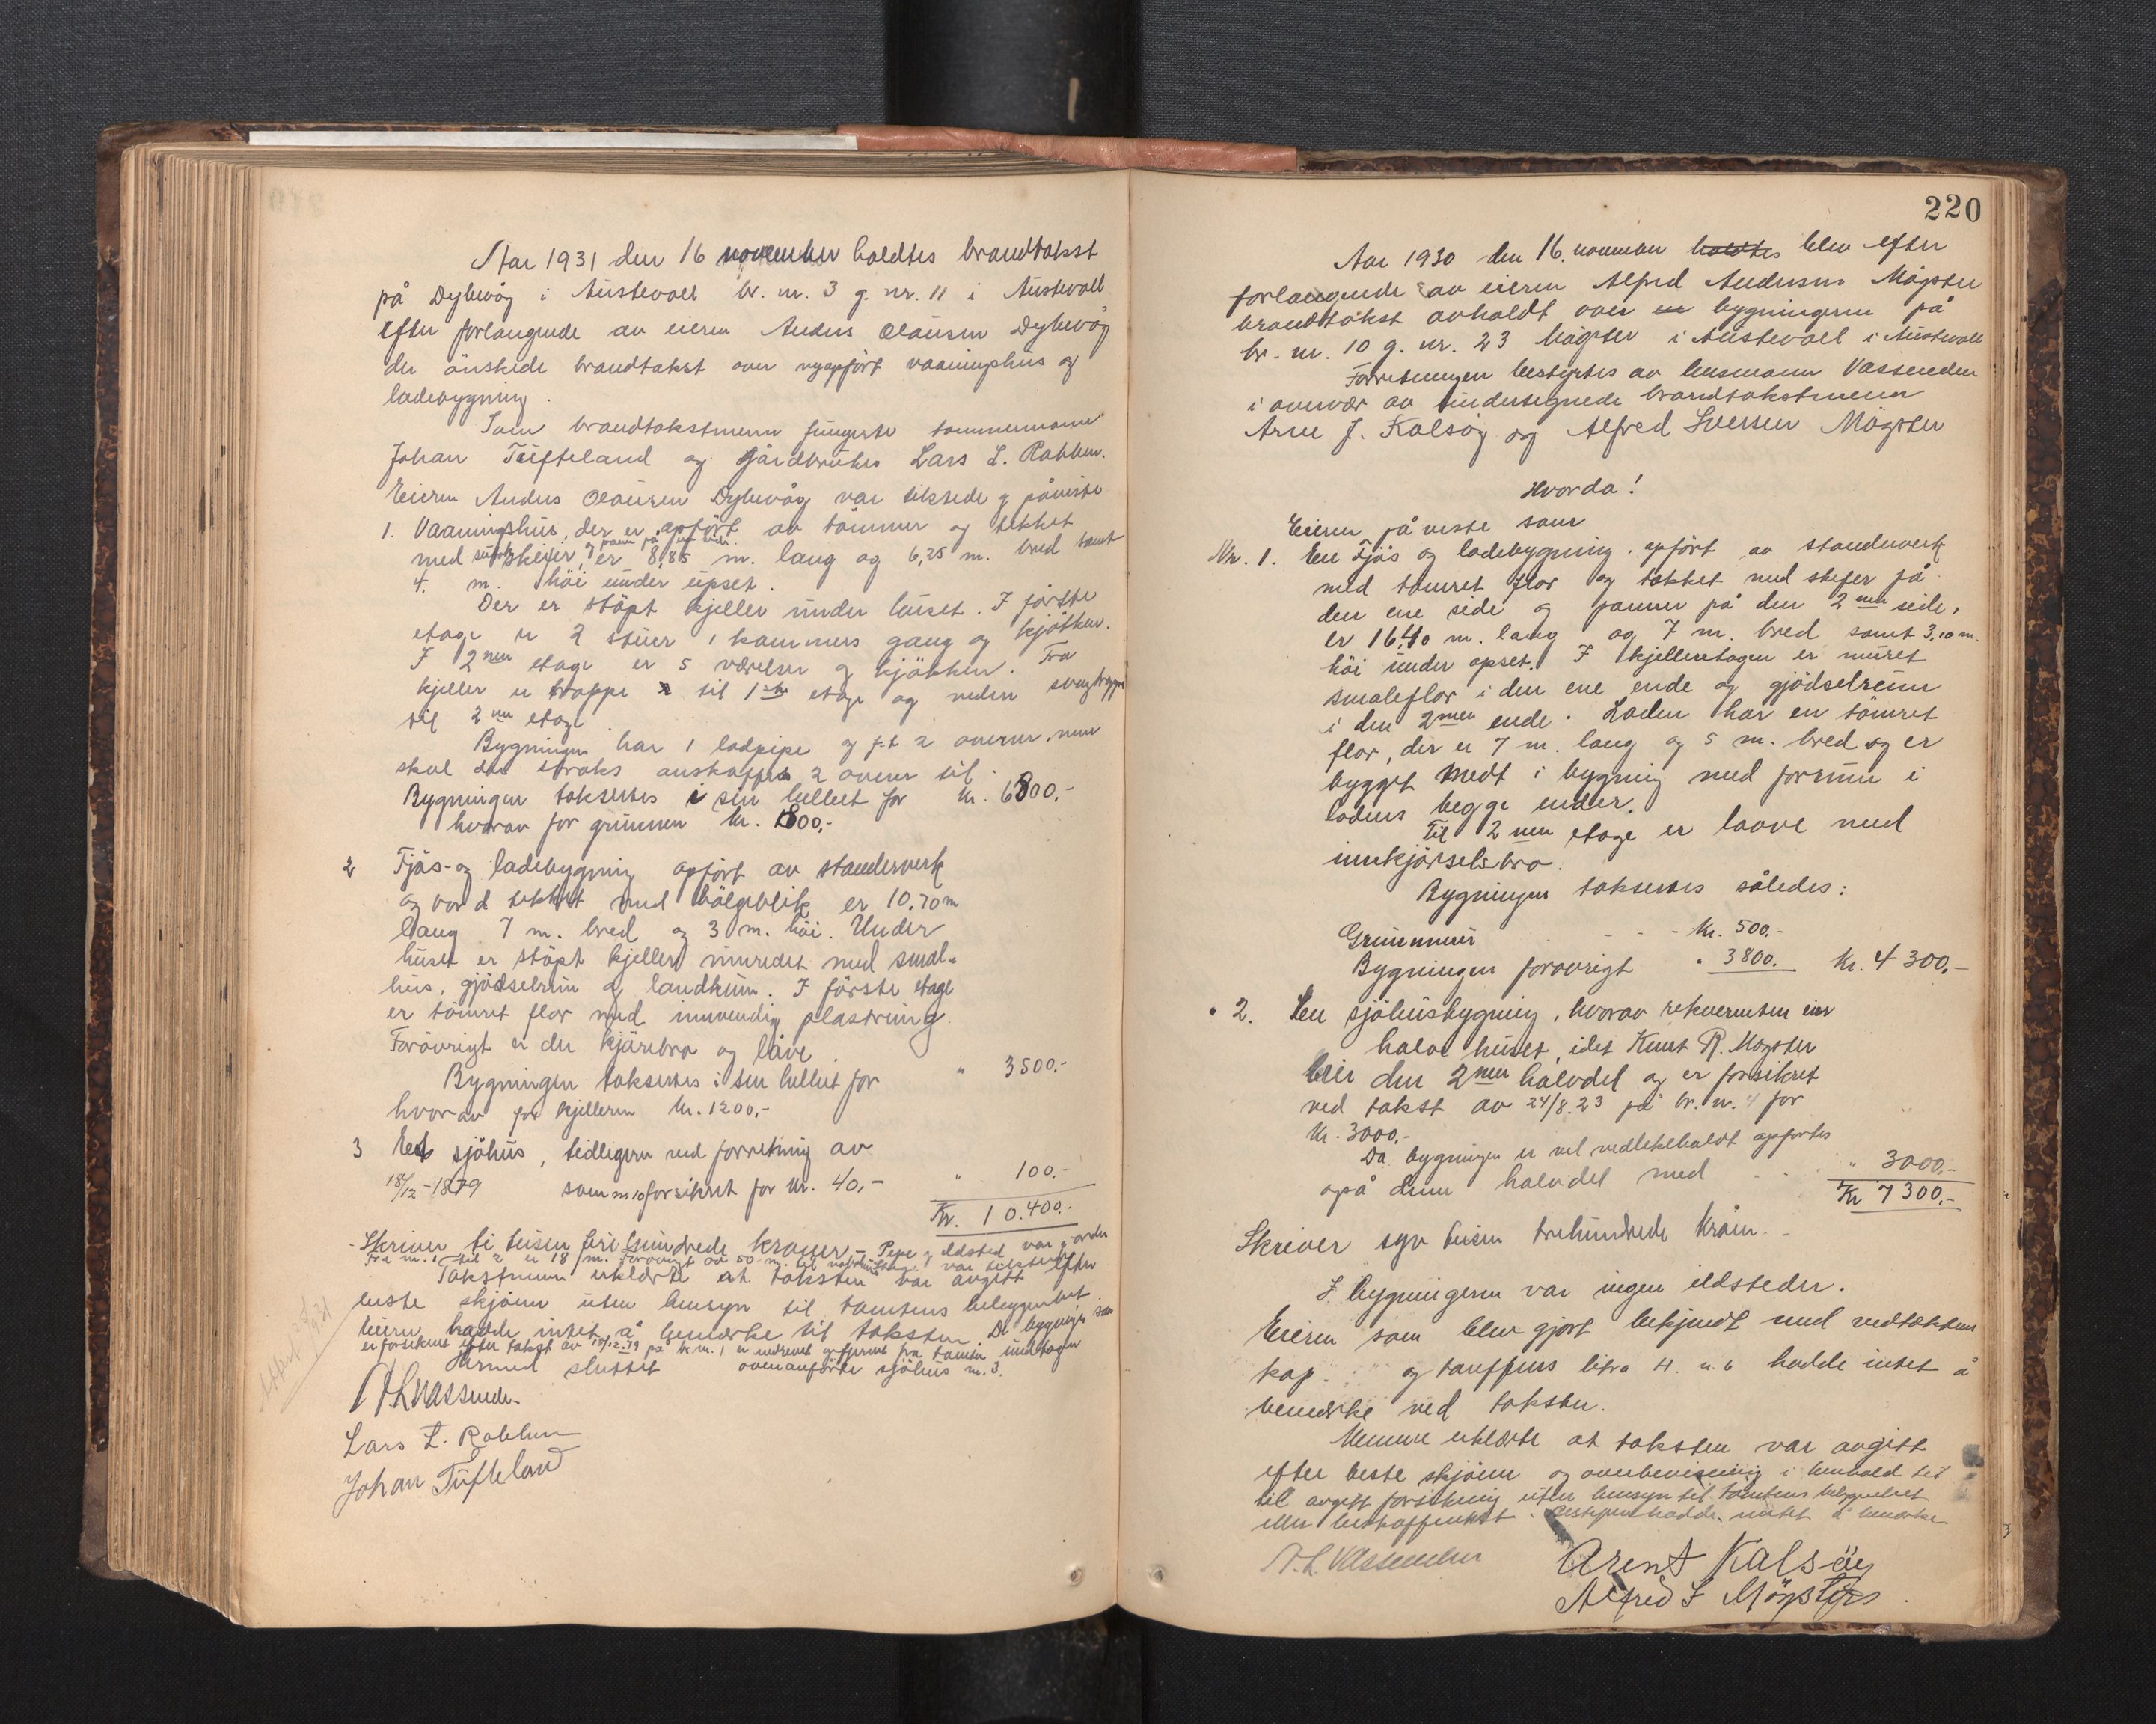 Aar 1931 den 16 november holdtes brandtakst
på Dybevåg i Austevoll br. nr. 3 g. nr. 11 i Austevoll
efter forlangende av eieren Anders Olausen Dybevåg
der ønskede brandtakst over nyopført vaaningshus og
ladebygning.
Som brandtakstmenn fungerte tømmermann
Johan Tufteland og gårdbruker Lars L. Rabben.
Eieren Anders Olausen Dybevåg var tilstede og påviste
1. Vaaningshus, der er opført av tømmer og tekket
med skeifer, er 8,85 m. lang og 6,25 m. bred samt
4. m. høi under upset.
Der er støpt kjeller under huset. I første
etage er 2 stuer 1 kammers gang og kjøkken.
I 2nen etage er 5 værelser og kjøkken. Fra
kjeller er trappe til 1ste etage og videre svingtrappe
til 2nen etage
Bygningen har 1 ladpipe og f.t 2 ovener, men
skal der straks anskaffes 2 ovner til.
Bygningen takseres i sin helhet for kr. 6800,-
hvorav for grunnen kr. 1800,-
2 Fjøs- og ladebygning opført av standerverk
og bord tekket med bølgeblik er 10.70 m
lang 7 m. bred og 3 m. høi. Under
huset er støpt kjeller innredet med smal-
hus, gjødselrum og landkum. I første etage
er tømret flor med innvendig plastring.
Forøvrigt er der kjørebro og låve.
Bygningen takseres i sin helhet for " 3500.-
hvorav for kjelleren kr. 1200,-
3 Et sjøhus, tidligere ved forretning av
18/12-1879 som nr 10 forsikret for kr. 40,- " 100.-
Kr. 10.400.-
- Skriver ti tusen fire hundrede kroner - Pipe og ildsted var i orden
Fra nr. 1 til 2 er 18 m. Forøvrigt 50 m. til
Takstmenn erklærte at taksten var avgitt efter
beste skjønn uten hensyn til tomtens beliggenhet.
Eieren hadde intet å bemerke til taksten. De bygninger som
er forsikret efter takst av 18/12.79 på br. nr. 1 er nedrevet og fjernet fra tomten undtagen
Dermed sluttet ovenanførte sjøhus nr. 3.
A L Vassenden
Lars L. Rabben
Johan Tufteland
220
Aar 1930 den 16. november holdtes blev efter
forlangende av eieren Alfred Andersen Møgster
brandtakst avholdt over bygningerne på
br. nr. 10 g. nr. 23 Møgster i Austevoll i Austevoll
Forretningen bestyrtes av lensmann Vassenden
i overvær av undertegnede brandtakstmenn
Arne J. Kalsøy og Alfred Iversen Møgster
Hvorda!
Eieren påviste som
Nr. 1. En Fjøs og ladebygning, opført av standerverk
med tømret flor og tækket med skefer på
den ene side og panner på den 2nen side,
er 16,40 m. lang og 7 m. bred samt 3,10 m.
høi under opset. I kjelleretagen er muret
smaleflor i den ene ende og gjødselrum
i den 2nen ende. Laden har en tømret
flor, der er 7 m. lang og 5 m. bred og er
bygget midt i bygning med forrum i
ladens begge ender.
Til 2nen etage er laave med
innkjørselsbro.
Bygningen takseres således:
Grunnmur - - - kr. 500.-
Bygningen forøvrigt " 3800. kr. 4300,-
" 2. En sjøhusbygning, hvorav rekvirenten eier
halve huset, idet Knut R. Møgster
eier den 2nen halvdel og er forsikret
ved takst av 24/8.23 på br. nr. 4 for
kr. 3000,-
Da bygningen er vel vedlikeholdt opførtes
også denne halvdel med " 3000,-
Kr 7300,-
Skriver syv tusen trehundrede Kroner. -
I bygningerne var ingen ildsteder.
Eieren som blev gjort bekjendt med vedtektene
kap. og tariffens litra H. n. 6 hadde intet å
bemerke ved taksten.
Mennene erklærte at taksten var avgitt
efter beste skjønn og overbevisning i henhold til
til avgitt forsikring uten hensyn til tomtens beliggenhet
eller beskaffenhet. Bestyreren hadde intet å bemerke
A. L. Vassenden Arent Kalsøy
Alfred I Møgster